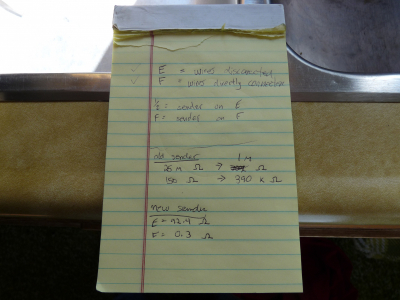 ✓ E = wires disconnected
✓ F = wires directly connected
E = sender on E
F = sender on F
old sender
26 M Ω → 1 M Ω
150 Ω → 390 K Ω
new sender
E = 92.9 Ω
F = 0.3 Ω